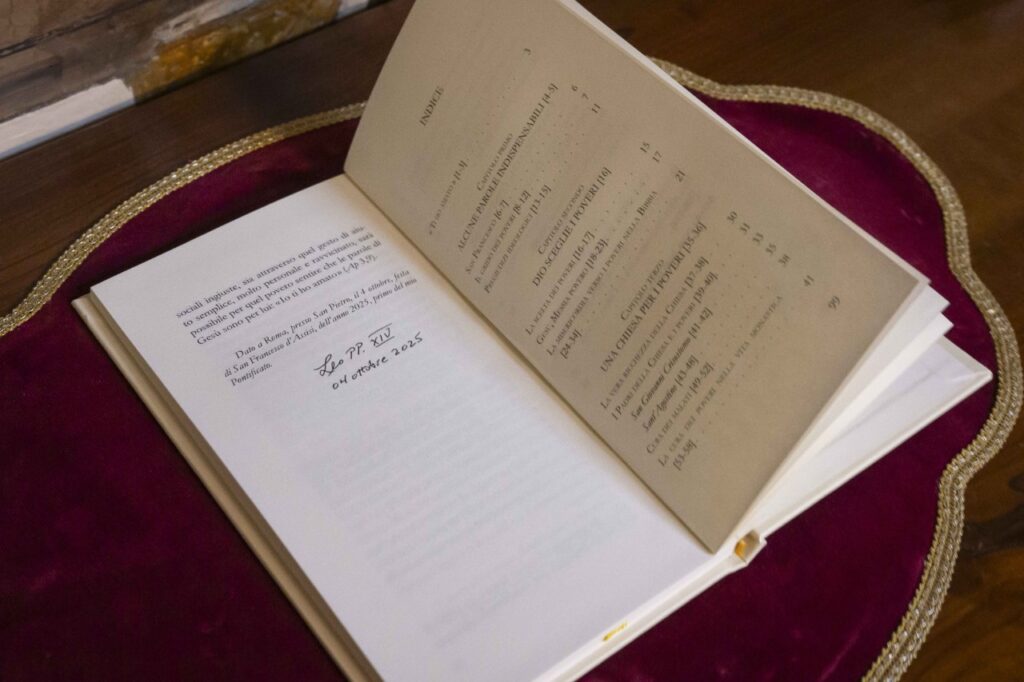 sociali ingiuste, sia attraverso quel gesto di aiu-
to semplice, molto personale e ravvicinato, sarà
possibile per quel povero sentire che le parole di
Gesù sono per lui: «Io ti ho amato» (Ap 3,9).
Dato a Roma, presso San Pietro, il 4 ottobre, festa
di San Francesco d'Assisi, dell'anno 2025, primo del mio
Pontificato.
Leo PP. XIV
04 ottobre 2025
INDICE
«Ti ho amato» [1-3] 3
Capitolo primo
ALCUNE PAROLE INDISPENSABILI [4-5] 6
San Francesco [6-7] 7
Il grido dei poveri [8-12]
Pregiudizi ideologici [13-15] 11
Capitolo secondo
DIO SCEGLIE I POVERI [16] 15
La scelta dei poveri [16-17]
Gesù, Messia povero [18-23] 17
La misericordia verso i poveri nella Bibbia
[24-34] 21
Capitolo terzo
UNA CHIESA PER I POVERI [35-36] 30
La vera ricchezza della Chiesa [37-38] 31
I Padri della Chiesa e i poveri [39-40] 33
San Giovanni Crisostomo [41-42] 35
Sant'Agostino [43-48] 38
Cura dei malati [49-52] 41
La cura dei poveri nella vita monastica
[53-58]
99